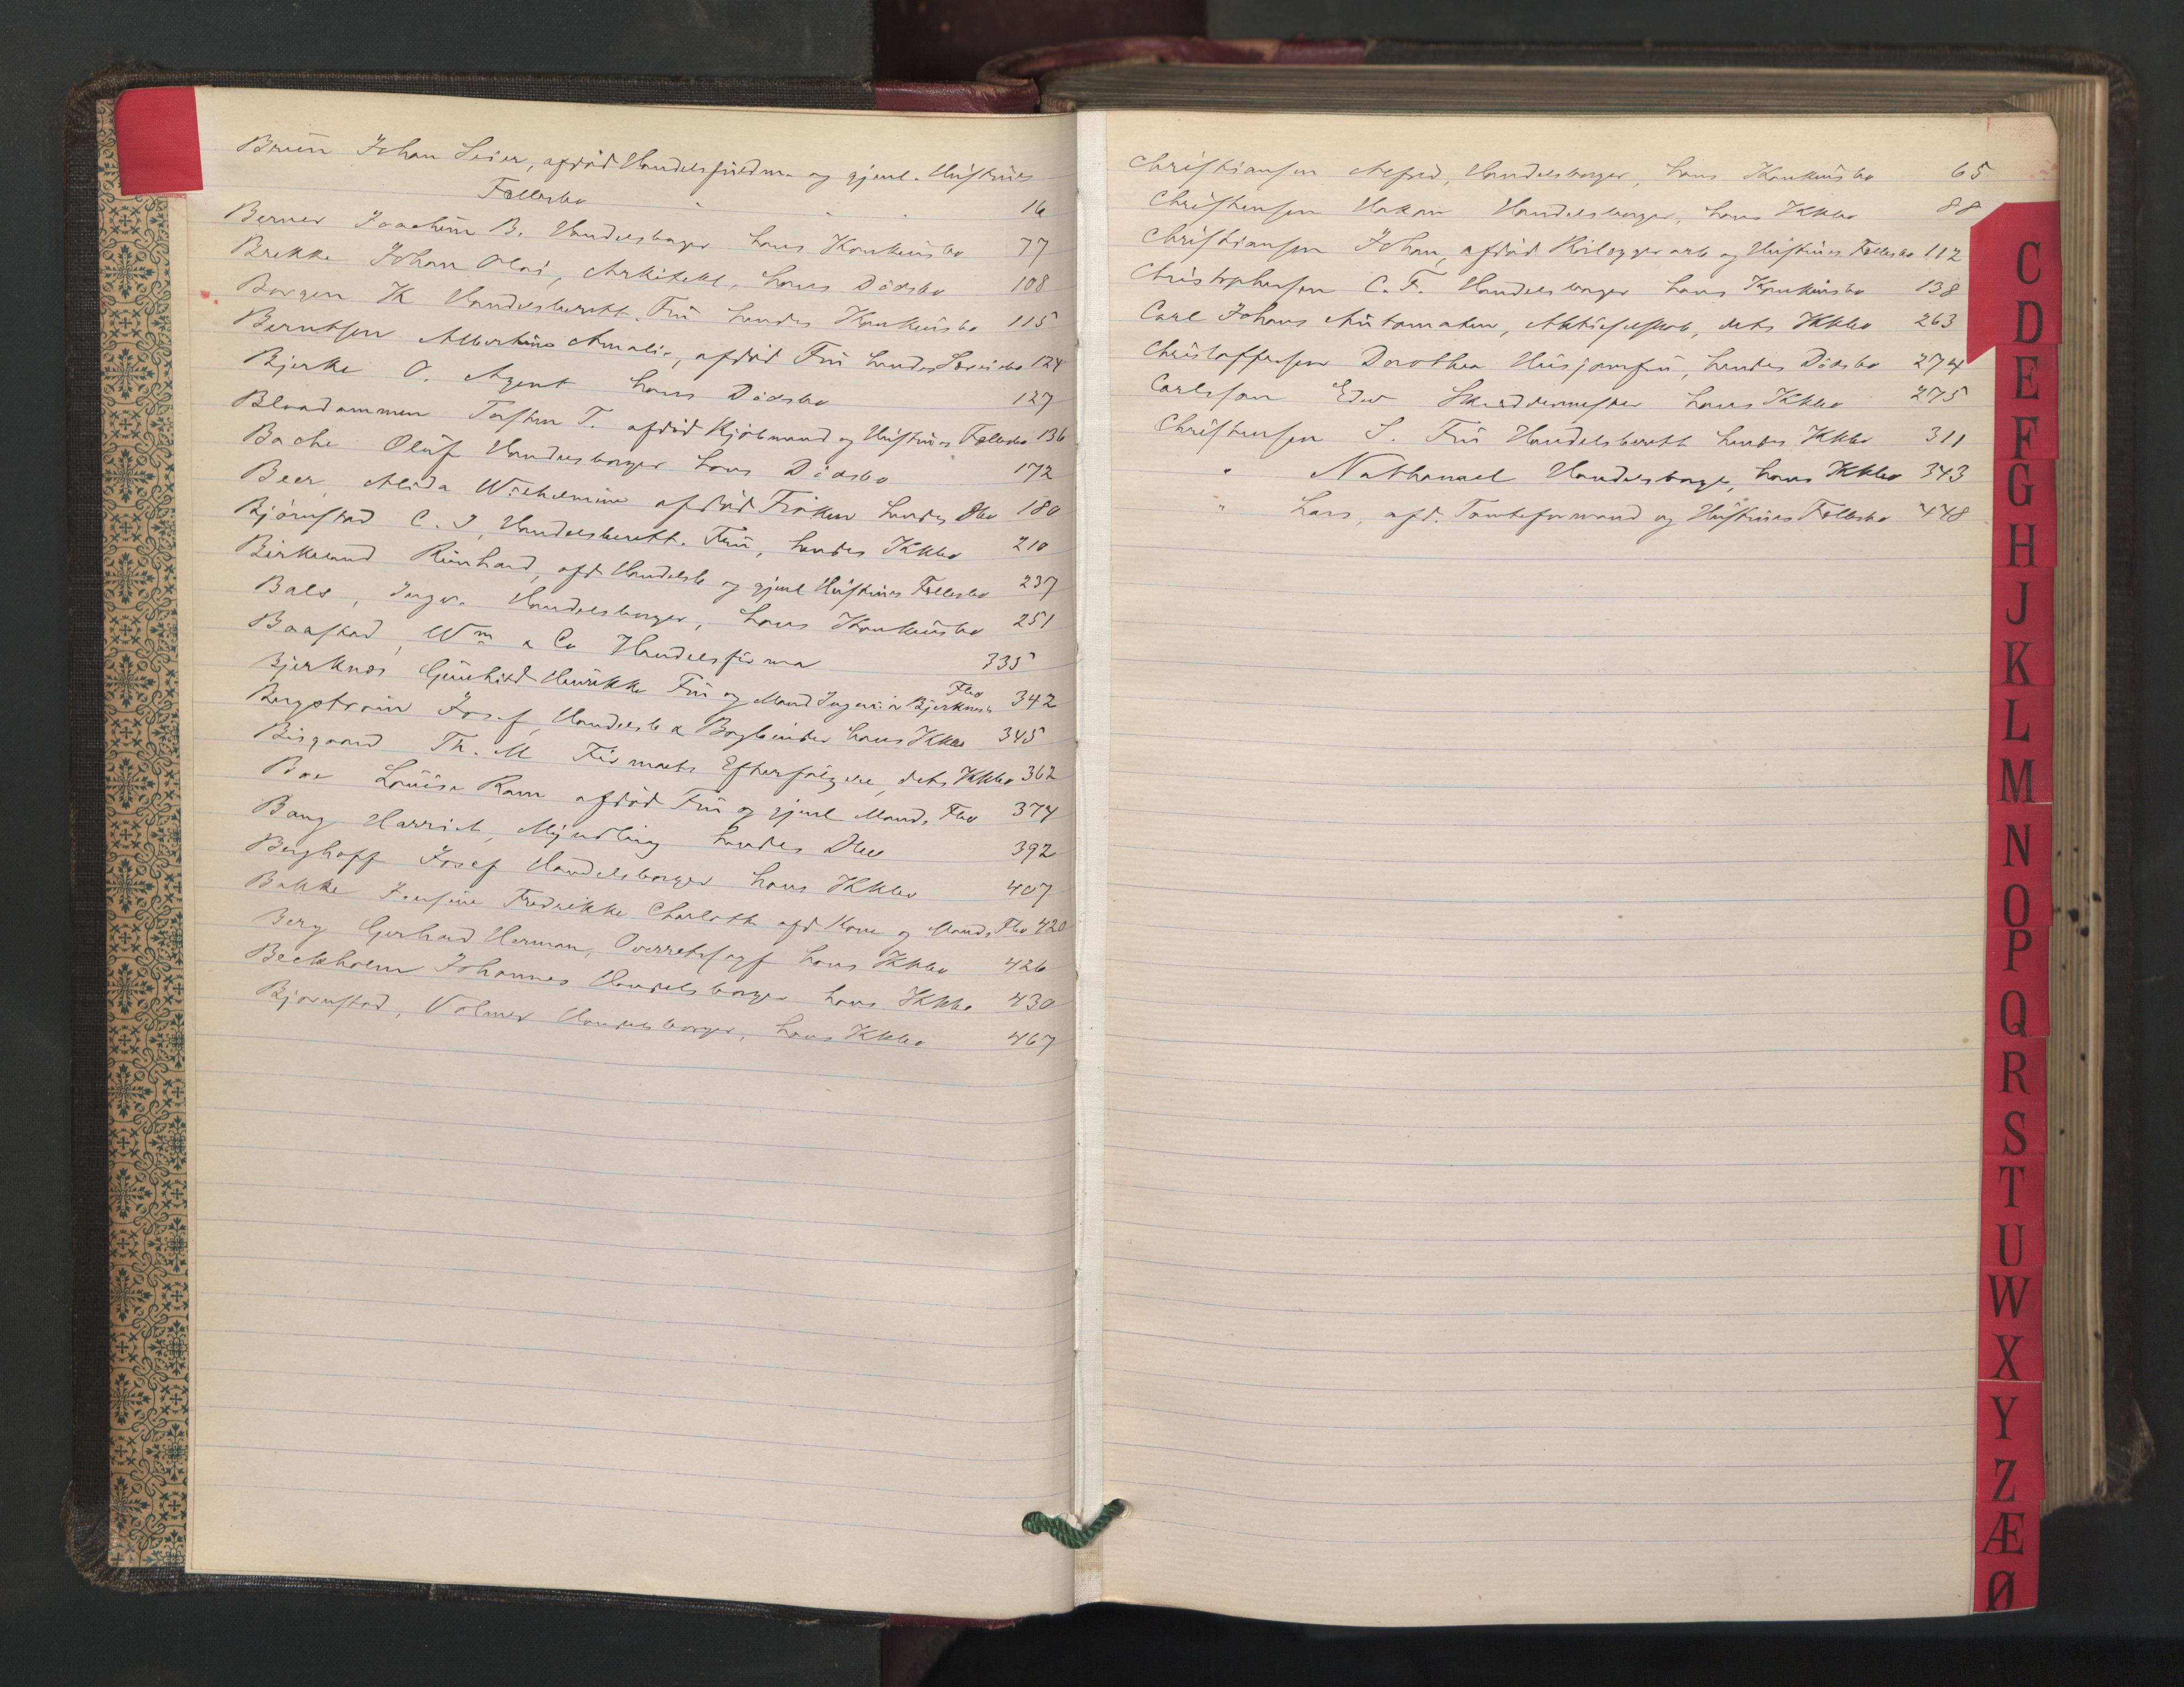 Bruun Johan Seier, afdød Handelsfuldm. og gjenl. Hustrues
Fællesbo 16
Berner Joachim B. Handelsborger hans Konkursbo 77
Brekke Johan Olai, Arkitekt, hans Dødsbo 108
Borgen K Handelsberett. Fru hendes Konkursbo 115
Berntsen Albertine Amalie, afdød Fru hendes 124
Bjerke O. Agent hans Dødsbo 127
Blaadammen Torsten T. afdød Kjøbmand og Hustrues Fællesbo 136
Bache Oluf Handelsborger hans Dødsbo 172
Beer, Alida Wilhelmine afdød Frøken hendes Dbo 180
Bjørnstad C. J, Handelsberett. Fru, hendes Kkbo 210
Birkelund Reinhard, afd Handelsb og gjenl Hustrues Fællesbo 237
Bals, Ingv. Handelsborger, hans Konkursbo 251
Baastad, Wm & Co Handelsfirma 335
Bjerknæs Gunhild Henrikke Fru og Mand Ingeniør Bjerknæs Fbo 342
Bergstrøm Josef, Handelsb & Bogbinder hans Kkbo 345
Bisgaard Th. M Firmaets Efterfølgere, dets Kkbo 362
Boe Lovise Ram afdød Fru og gjenl Mands Fbo 374
Bang Harriet, Myndling hendes Dbo 392
Berghoff Josef Handelsborger hans Kkbo 407
Bakke Josefine Fredrikke Charlotte afd Kone og Mands Fbo 420
Berg Gerhard Herman, Overretssagf hans Kkbo 426
Beckholm Johannes Handelsborger hans Kkbo 430
Bjørnstad, Volmer Handelsborger, hans Kkbo 467
Christiansen Alfred, Handelsborger, hans Konkursbo 65
Christensen Hakon Handelsborger, hans Kkbo 88
Christiansen Johan, afdød og Hustrues Fællesbo 112
Christophersen C. F. Handelsborger hans Konkursbo 138
Carl Johans Automaten, Aktieselskab, dets Kkbo 263
Christoffersen Dorothea Husjomfru, hendes Dødsbo 274
Carlsson Edw Skræddermester hans Kkbo 275
Christensen S. Fru Handelsberett hendes Kkbo 311
" Nathanael Handelsborger, hans Kkbo 343
" Lars, afd. Tomteformand og Hustrues Fællesbo 448
C
D
E
F
G
H
J
K
L
M
N
O
P
Q
R
S
T
U
W
X
Y
Z
Æ
Ø